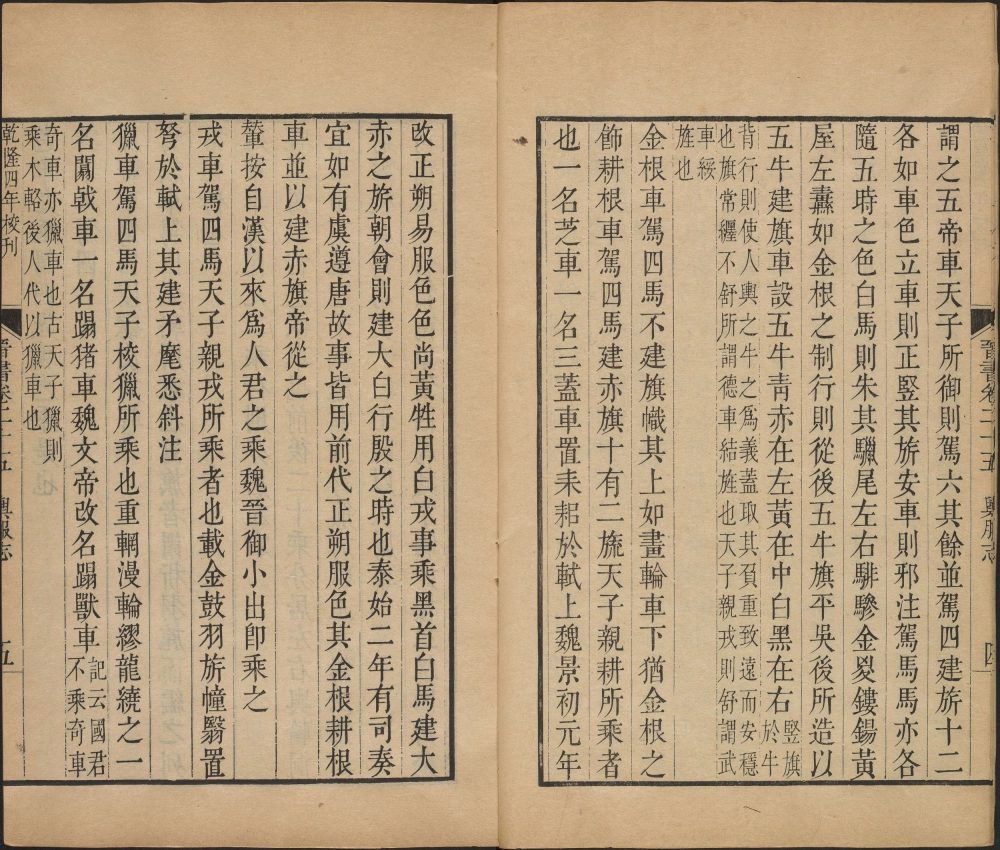 晉書卷二十五 輿服志 四
謂之五帝車天子所御則駕六其餘並駕四建旂十二
各如車色立車則正豎其旂安車則邪注駕馬馬亦各
隨五時之色白馬則朱其鬣尾左右騑驂金㚇鏤鍚黃
屋左纛如金根之制行則從後五牛旗平吳後所造以
五牛建旗車設五牛青赤在左黃在中白黑在右豎旗於牛
背行則使人輿之牛之爲義蓋取其負重致遠而安穩
也旗常纏不舒所謂德車結旌也天子親戎則舒謂武
車綏
旌也
金根車駕四馬不建旗幟其上如畫輪車下猶金根之
飾耕根車駕四馬建赤旗十有二旒天子親耕所乘者
也一名芝車一名三蓋車置耒耜於軾上魏景初元年
改正朔易服色色尚黃牲用白戎事乘黑首白馬建大
赤之旂朝會則建大白行殷之時也泰始二年有司奏
宜如有虞遵唐故事皆用前代正朔服色其金根耕根
車並以建赤旗帝從之
輦按自漢以來爲人君之乘魏晉御小出卽乘之
戎車駕四馬天子親戎所乘者也載金鼓羽旂幢翳置
弩於軾上其建矛麾悉斜注
獵車駕四馬天子校獵所乘也重輞漫輪繆龍繞之一
名闟戟車一名蹋猪車魏文帝改名蹋獸車記云國君不乘奇車
奇車亦獵車也古天子獵則
乘木輅後人代以獵車也
乾隆四年校刊
晉書卷二十五 輿服志 五